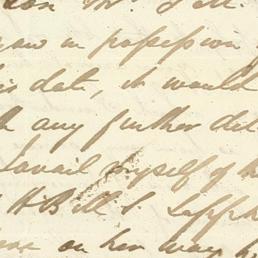 on Mr.
you in possession
is date, it would
any further det
avail myself of h
H B M S. Sapph
on her way